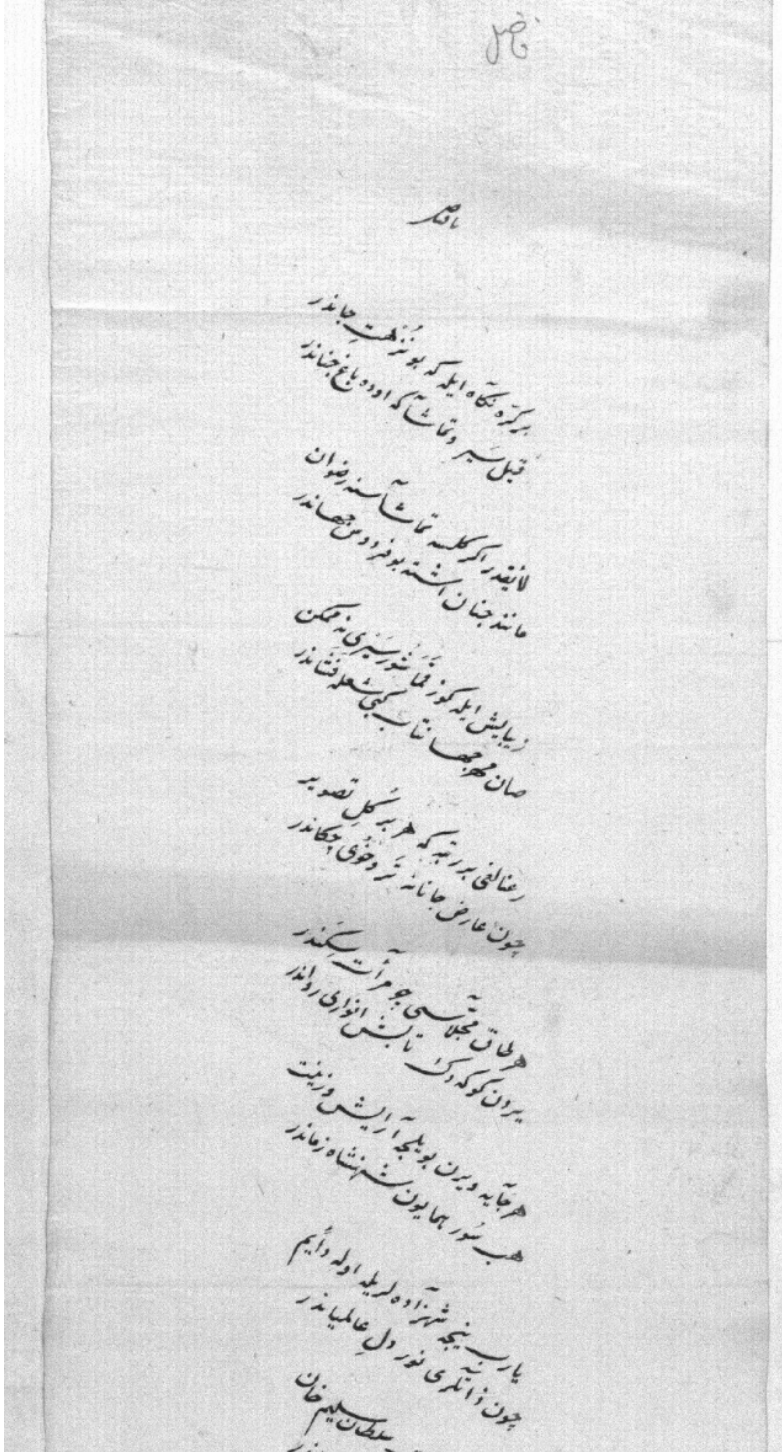 فاضل
بر کره نگاه ایله که بو نزهت جاندر
قیل سیر و تماشا که او ده باغ جناندر
لایقدر اکر کلسه تماشاسنه رضوان
مانند جنان اشته بو فردوس جهاندر
زیبایش ایله کوز قماشور سیری نه ممکن
صان مهر جهانتاب کبی شعله فشاندر
رعنالغی بر رتبه که هر بر کل تصویر
چون عارض جانانه تر و خوی چکاندر
هر طاق مجلاسی چو مرآت سکندر
یردن کوکه دک تابش انواری رواندر
هر جایه ویرن بویله آرایش و زینت
هب سور همایون شهنشاه زماندر
یارب نیجه شهزاده لریله اوله دایم
چون ذاتلری نور دل عالمیاندر
سلطان سلیم خان